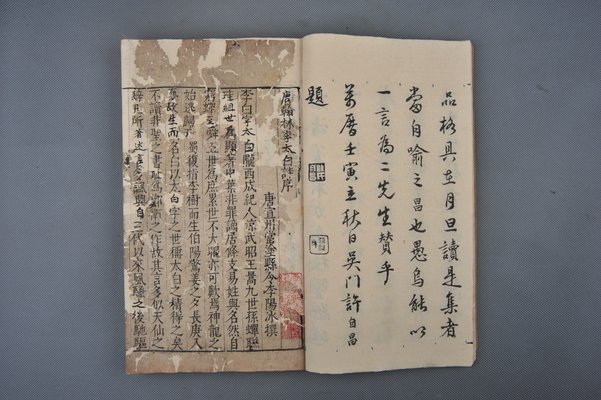 品格具在月旦讀是集者
當自喻之昌也愚烏能以
一言為二先生贊乎
萬曆壬寅立秋日吳門許自昌
題
唐翰林李太白詩序
唐宣州當塗縣令李陽冰撰
李白字太白隴西成紀人涼武昭王暠九世孫蟬聯
珪組世為顯著中葉非罪謫居條支易姓與名然自
窮蟬至舜五世為庶累世不大曜亦可歎焉神龍之
始逃歸于蜀復指李樹而生伯陽驚姜之夕長庚入
夢故生而名白以太白字之世稱太白之精得之矣
不讀非聖之書恥為鄭衛之作故其言多似天仙之
辭凡所著述言多諷興自三代以來風騷之後馳驅